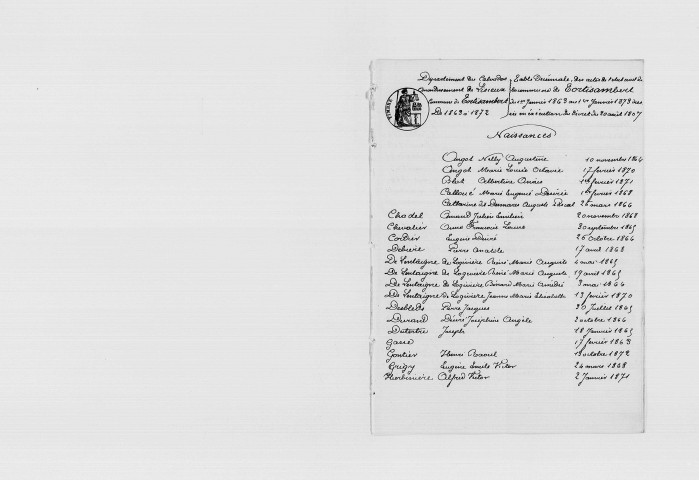 Département du Calvados
Arrondissement de Lisieux
Commune de Tortisambert
De 1863 à 1872
Table Décennale, des actes de l'état civil de
la commune de Tortisambert
du 1er Janvier 1863 au 1er Janvier 1873
en exécution du décret du 20 Juillet 1807
TIMBRE
Naissances
Angot Nelly Augustine 10 novembre 1864
Angot Marie Louise Octavie 17 février 1870
Albertine 1er février 1871
Marie Eugénie Désirée 1er février 1868
Catherine des Desmares Auguste Pascal 26 mars 1866
Chodel Armand Julien 20 novembre 1868
Chevalier Anne Françoise Laure 30 septembre 1865
Cordier Eugène Désiré 26 Octobre 1866
Pierre Anatole 17 avril 1863
De Lentaigne de Logivière René Marie Auguste 4 mai 1865
De Lentaigne de Logivière René Marie Auguste 19 avril 1865
De Lentaigne de Logivière Marie Amédée 3 mai 1866
De Lentaigne de Logivière Jeanne Marie Elisabeth 13 février 1870
Desbleds Pierre Jacques 30 Juillet 1865
Durand Désiré Joséphine Angèle 2 octobre 1866
Dutertre Joseph 18 Janvier 1865
Gasse 17 février 1863
Gontier Henri Raoul 13 octobre 1872
Grigy Eugène Emile Victor 24 mars 1868
Alfred Victor 2 Janvier 1871